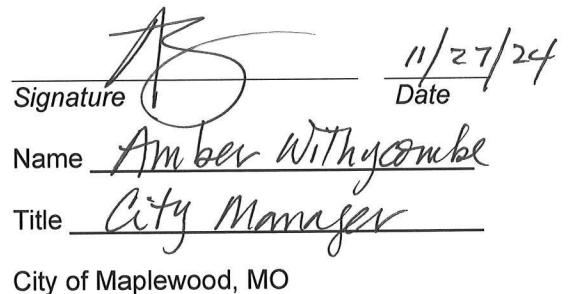 11/27/24
Signature Date
Name Amber Withycombe
Title City Manager
City of Maplewood, MO